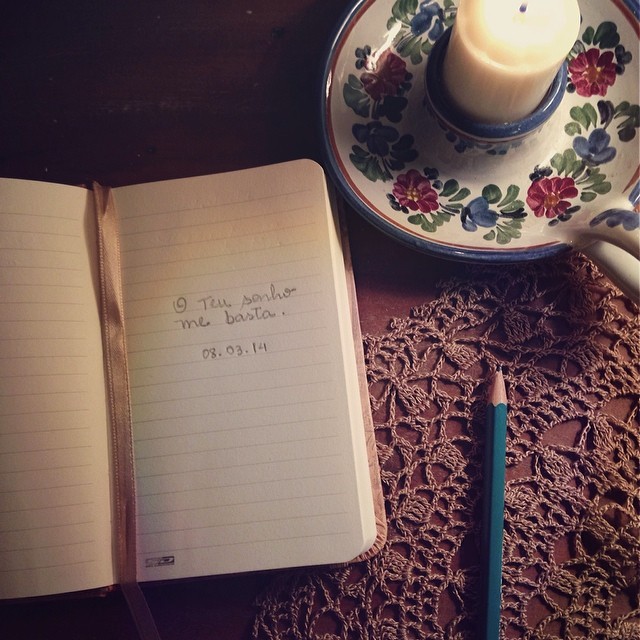 O Teu sonho
me basta.
08.03.14